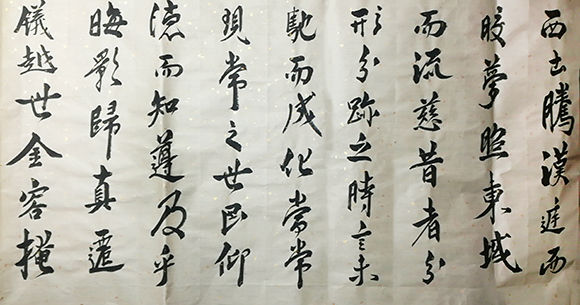 西土騰漢庭而
皎夢照東域
而流慈昔者分
形分跡之時言未
馳而成化當常
現常之世民仰
德而知遵及乎
晦影歸真遷
儀越世金容掩